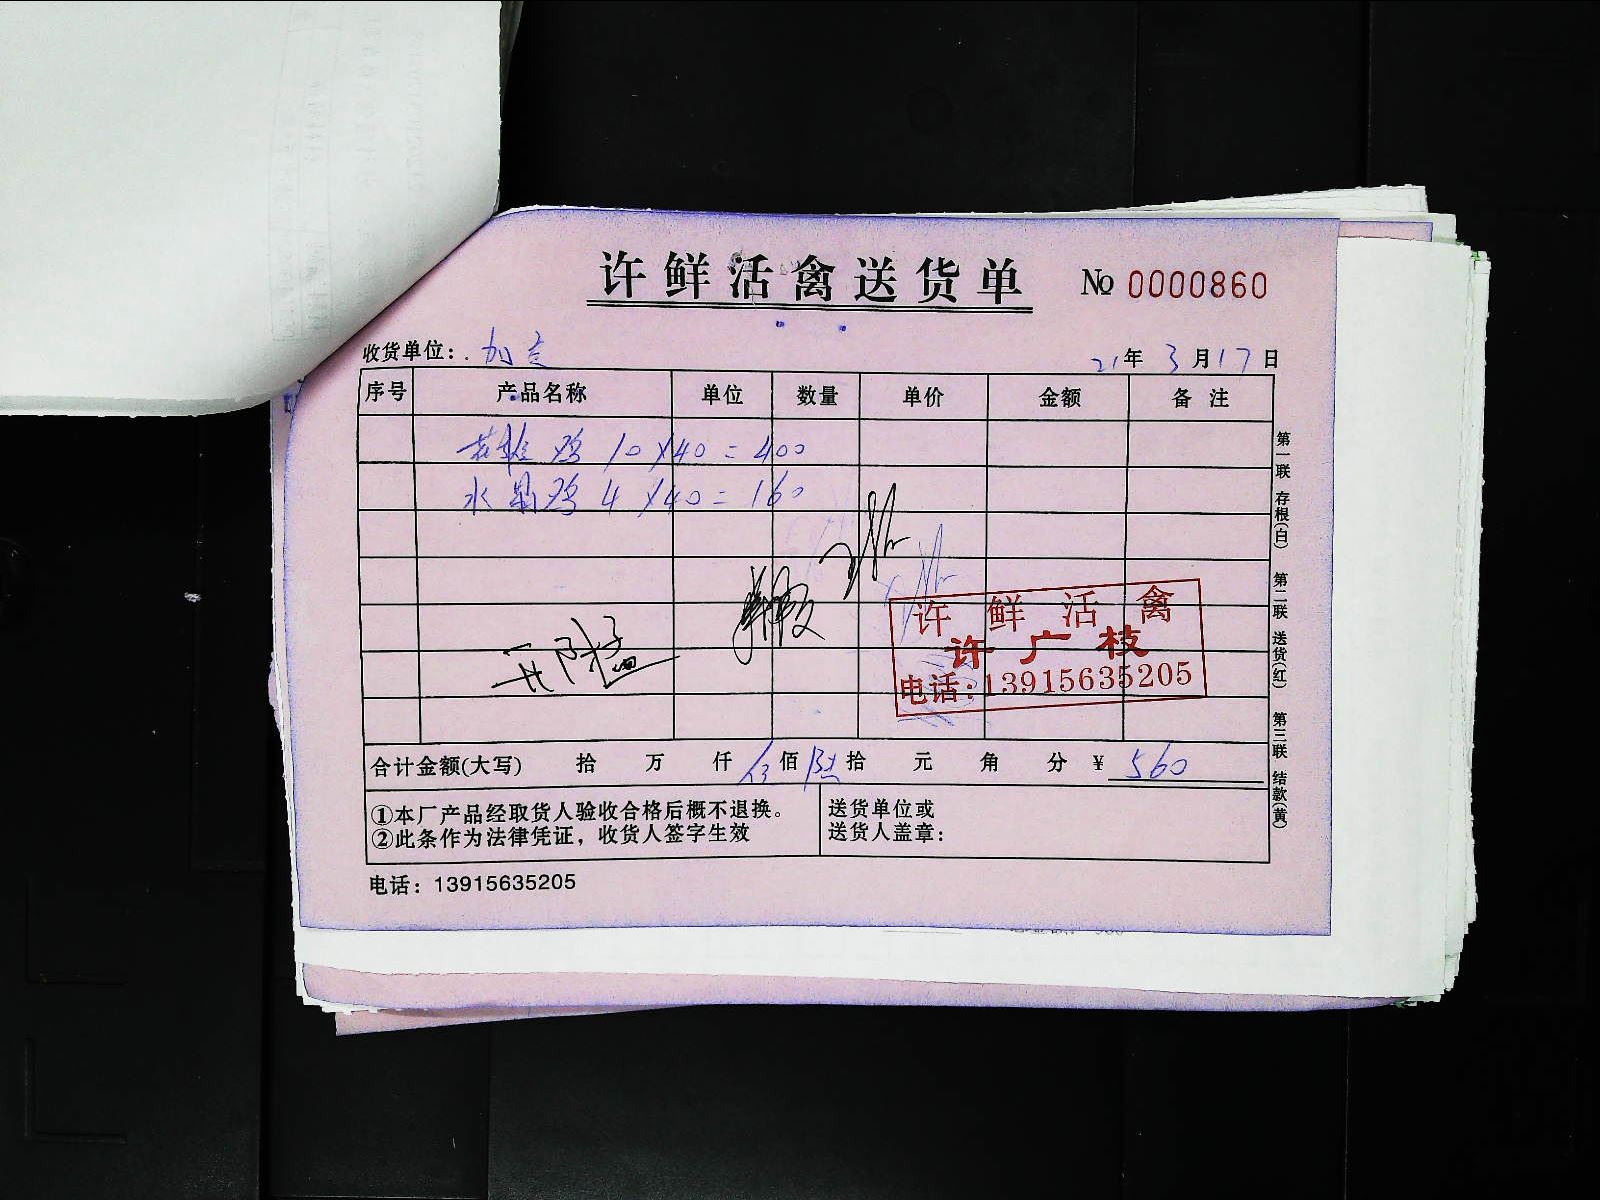 许鲜活禽送货单 № 0000860
收货单位：加
21年 3月17日
序号 产品名称 单位 数量 单价 金额 备注
鸡 10×40=400
水晶鸡 4×40=160
许鲜活禽
许广枝
电话:13915635205
合计金额(大写) 拾 万 仟 伍佰 陆拾 元 角 分 ¥ 560
①本厂产品经取货人验收合格后概不退换。
②此条作为法律凭证，收货人签字生效
送货单位或
送货人盖章：
电话：13915635205
第一联 存根(白) 第二联 送货(红) 第三联 结款(黄)